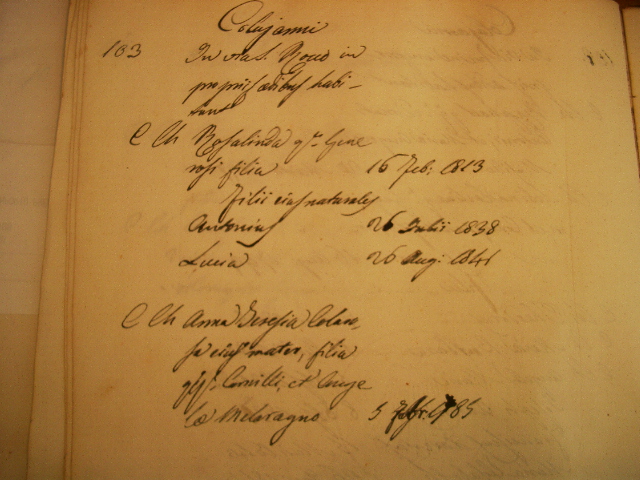 Colajanni
103 In via S. Rocco in
propriis ædibus habi-
tant
C Ch Rosalinda qm Gene
rosi filia 16 Feb: 1813
Filii eius naturales
Antonius 26 Iulii 1838
Lucia 26 Aug: 1841
C Ch Anna Teresia
eius mater, filia
Camilli, et Ange
læ Melaragno 5 1785